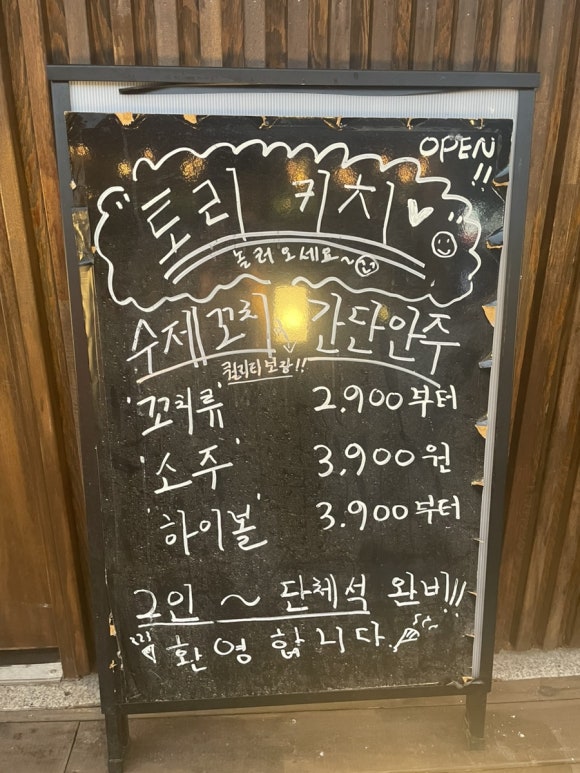 OPEN!!
토리 키치
놀러 오세요~
수제꼬치 간단안주
퀄리티보장!!
'꼬치류' 2,900부터
'소주' 3,900원
'하이볼' 3.900부터
2인 ~ 단체석 완비!!
환영합니다.